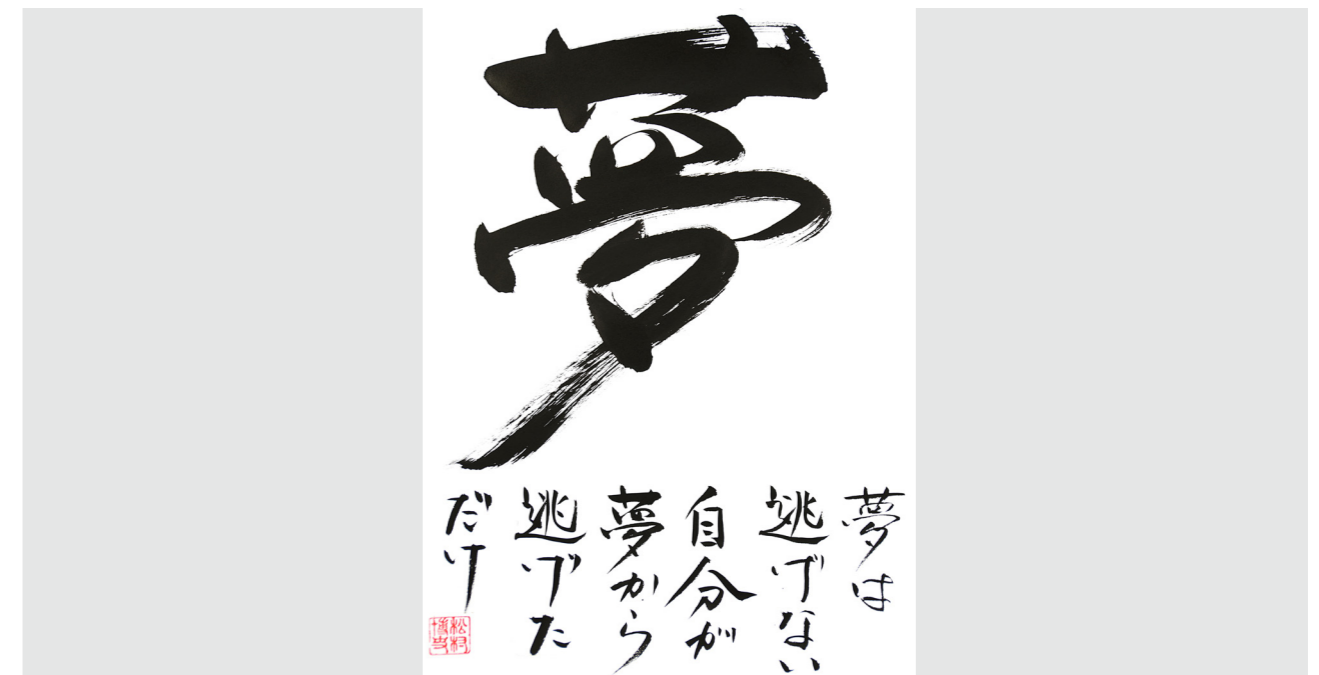 夢
夢は
逃げない
自分が
夢から
逃げた
だけ